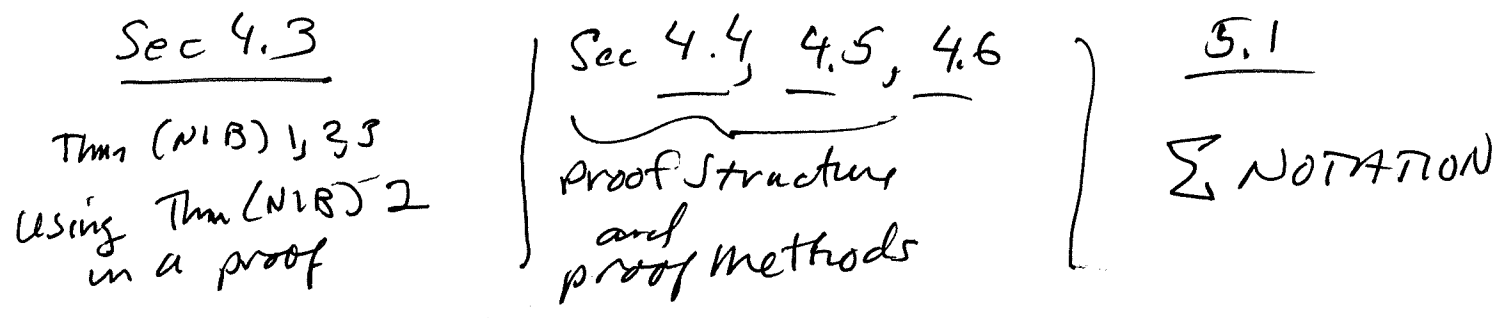 Sec 4.3
Thm (NIB) 1, 2, 3
Using Thm (NIB) 2
in a proof
Sec 4.4, 4.5, 4.6
proof structure
and
proof methods
5.1
Σ NOTATION